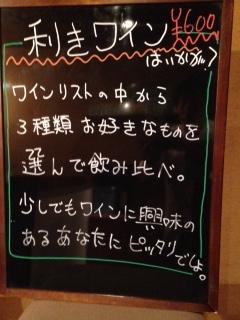 利きワイン ¥600
はいかが。?
ワインリストの中から
3種類お好きなものを
選んで飲み比べ。
少しでもワインに興味の
あるあなたにピッタリでは。